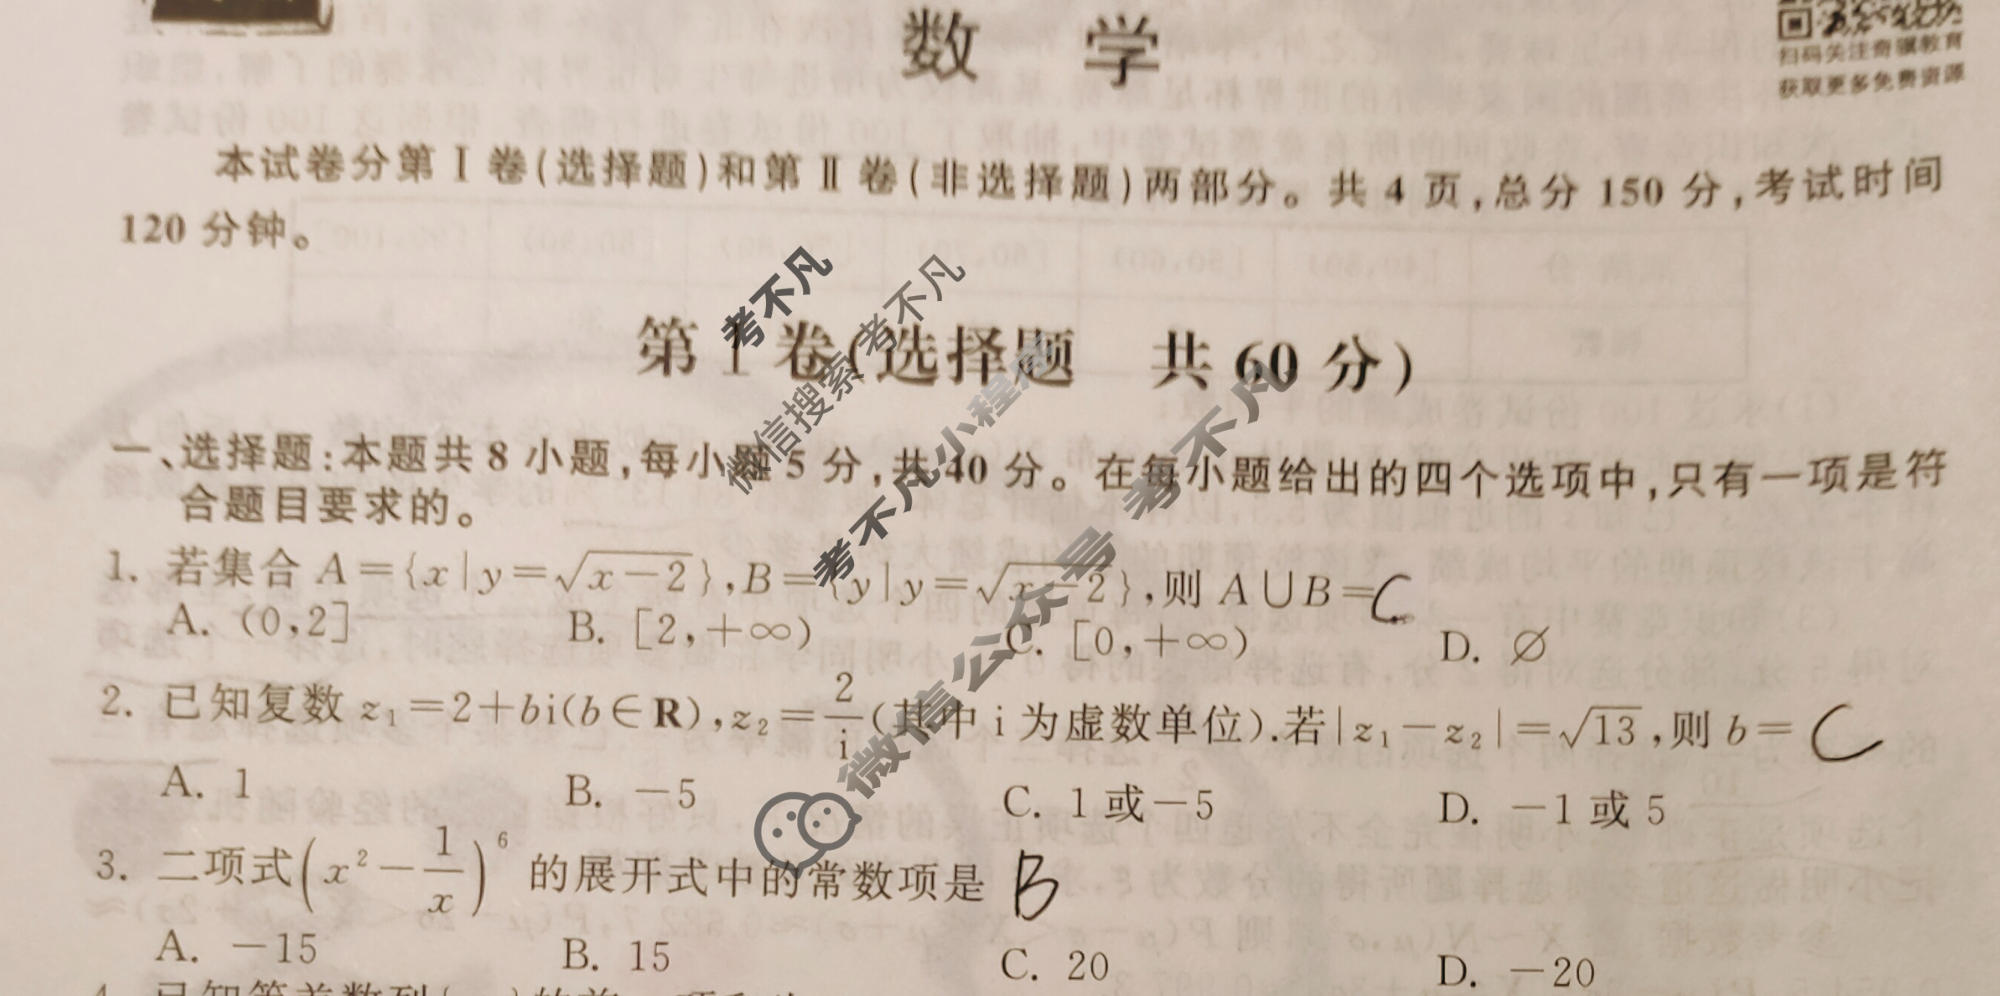 数 学
扫码关注奇骥教育
获取更多免费资源
本试卷分第Ⅰ卷(选择题)和第Ⅱ卷(非选择题)两部分。共4页,总分150分,考试时间
120分钟。
第Ⅰ卷(选择题 共60分)
一、选择题:本题共8小题,每小题5分,共40分。在每小题给出的四个选项中,只有一项是符
合题目要求的。
1. 若集合A={x|y=√(x-2)},B={y|y=√(x-2)},则A∪B= C
A. (0,2] B. [2,+∞) C. [0,+∞) D. ∅
2. 已知复数z₁=2+bi(b∈R),z₂=2/i(其中i为虚数单位).若|z₁-z₂|=√13,则b= C
A. 1 B. -5 C. 1或-5 D. -1或5
3. 二项式(x²-1/x)⁶的展开式中的常数项是 B
A. -15 B. 15 C. 20 D. -20
考不凡
微信搜索 考不凡
考不凡小程序
微信公众号 考不凡